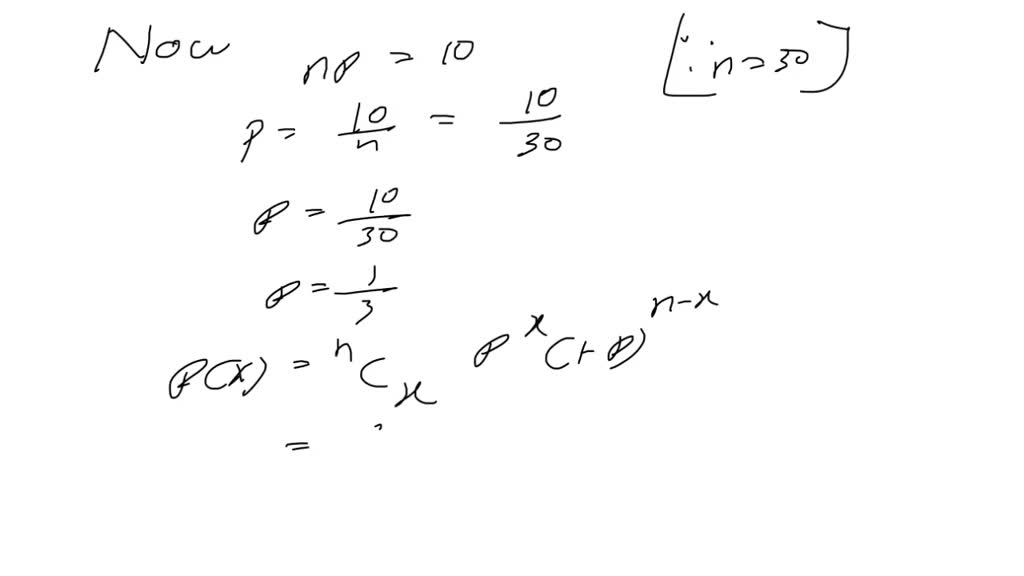 Now np = 10 [∵ n = 30]
p = 10/n = 10/30
p = 10/30
p = 1/3
P(X) = ⁿCₓ pˣ (1-p)ⁿ⁻ˣ
=